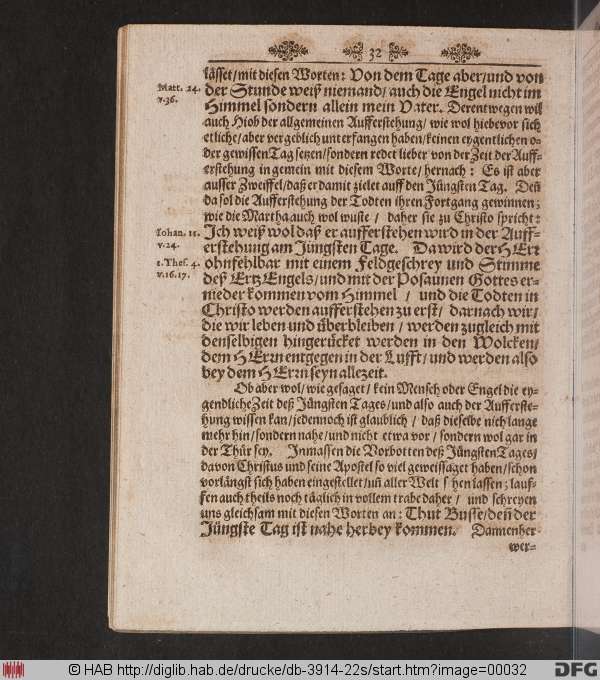 32
läſſet/ mit dieſen Worten: Von dem Tage aber/ und von
Matt. 24. der Stunde weiß niemand/ auch die Engel nicht im
v.36. Himmel ſondern allein mein Vater. Derentwegen wil
auch Hiob der allgemeinen Aufferſtehung/ wie wol hiebevor ſich
etliche/ aber vergeblich unterfangen haben/ keinen eygentlichen o-
der gewiſſen Tag ſetzen/ ſondern redet lieber von der Zeit der Auff-
erſtehung in gemein mit dieſem Worte/ hernach: Es iſt aber
auſſer Zweiffel/ daß er damit zielet auff den Jüngſten Tag. Deñ
da ſol die Aufferſtehung der Todten ihren Fortgang gewinnen;
wie die Martha auch wol wuſte/ daher ſie zu Chriſto ſpricht:
Iohan. 11. Ich weiß wol daß er aufferſtehen wird in der Auff-
v.24. erſtehung am Jüngſten Tage. Da wird der HErr
1. Theſ. 4. ohnfehlbar mit einem Feldgeſchrey und Stimme
v.16.17. deß ErtzEngels/ und mit der Poſaunen Gottes er-
nieder kommen vom Himmel/ und die Todten in
Chriſto werden aufferſtehen zu erſt/ darnach wir/
die wir leben und überbleiben/ werden zugleich mit
denſelbigen hingerücket werden in den Wolcken/
dem HErrn entgegen in der Lufft/ und werden alſo
bey dem HErrn ſeyn allezeit.
Ob aber wol/ wie geſaget/ kein Menſch oder Engel die ey-
gendliche Zeit deß Jüngſten Tages/ und alſo auch der Aufferſte-
hung wiſſen kan/ jedennoch iſt glaublich/ daß dieſelbe nich lange
mehr hin/ ſondern nahe/ und nicht etwa vor/ ſondern wol gar in
der Thür ſey. Inmaſſen die Vorbotten deß Jüngſten Tages/
davon Chriſtus und ſeine Apoſtel ſo viel geweiſſaget haben/ ſchon
vorlängſt ſich haben eingeſtellet/ uñ aller Welt ſ hen laſſen; lauf-
fen auch theils noch täglich in vollem trabe daher/ und ſchreyen
uns gleichſam mit dieſen Worten an: Thut Buſſe/ deñ der
Jüngſte Tag iſt nahe herbey kommen. Dannenher
wer-
© HAB http://diglib.hab.de/drucke/db-3914-22s/start.htm?image=00032
DFG